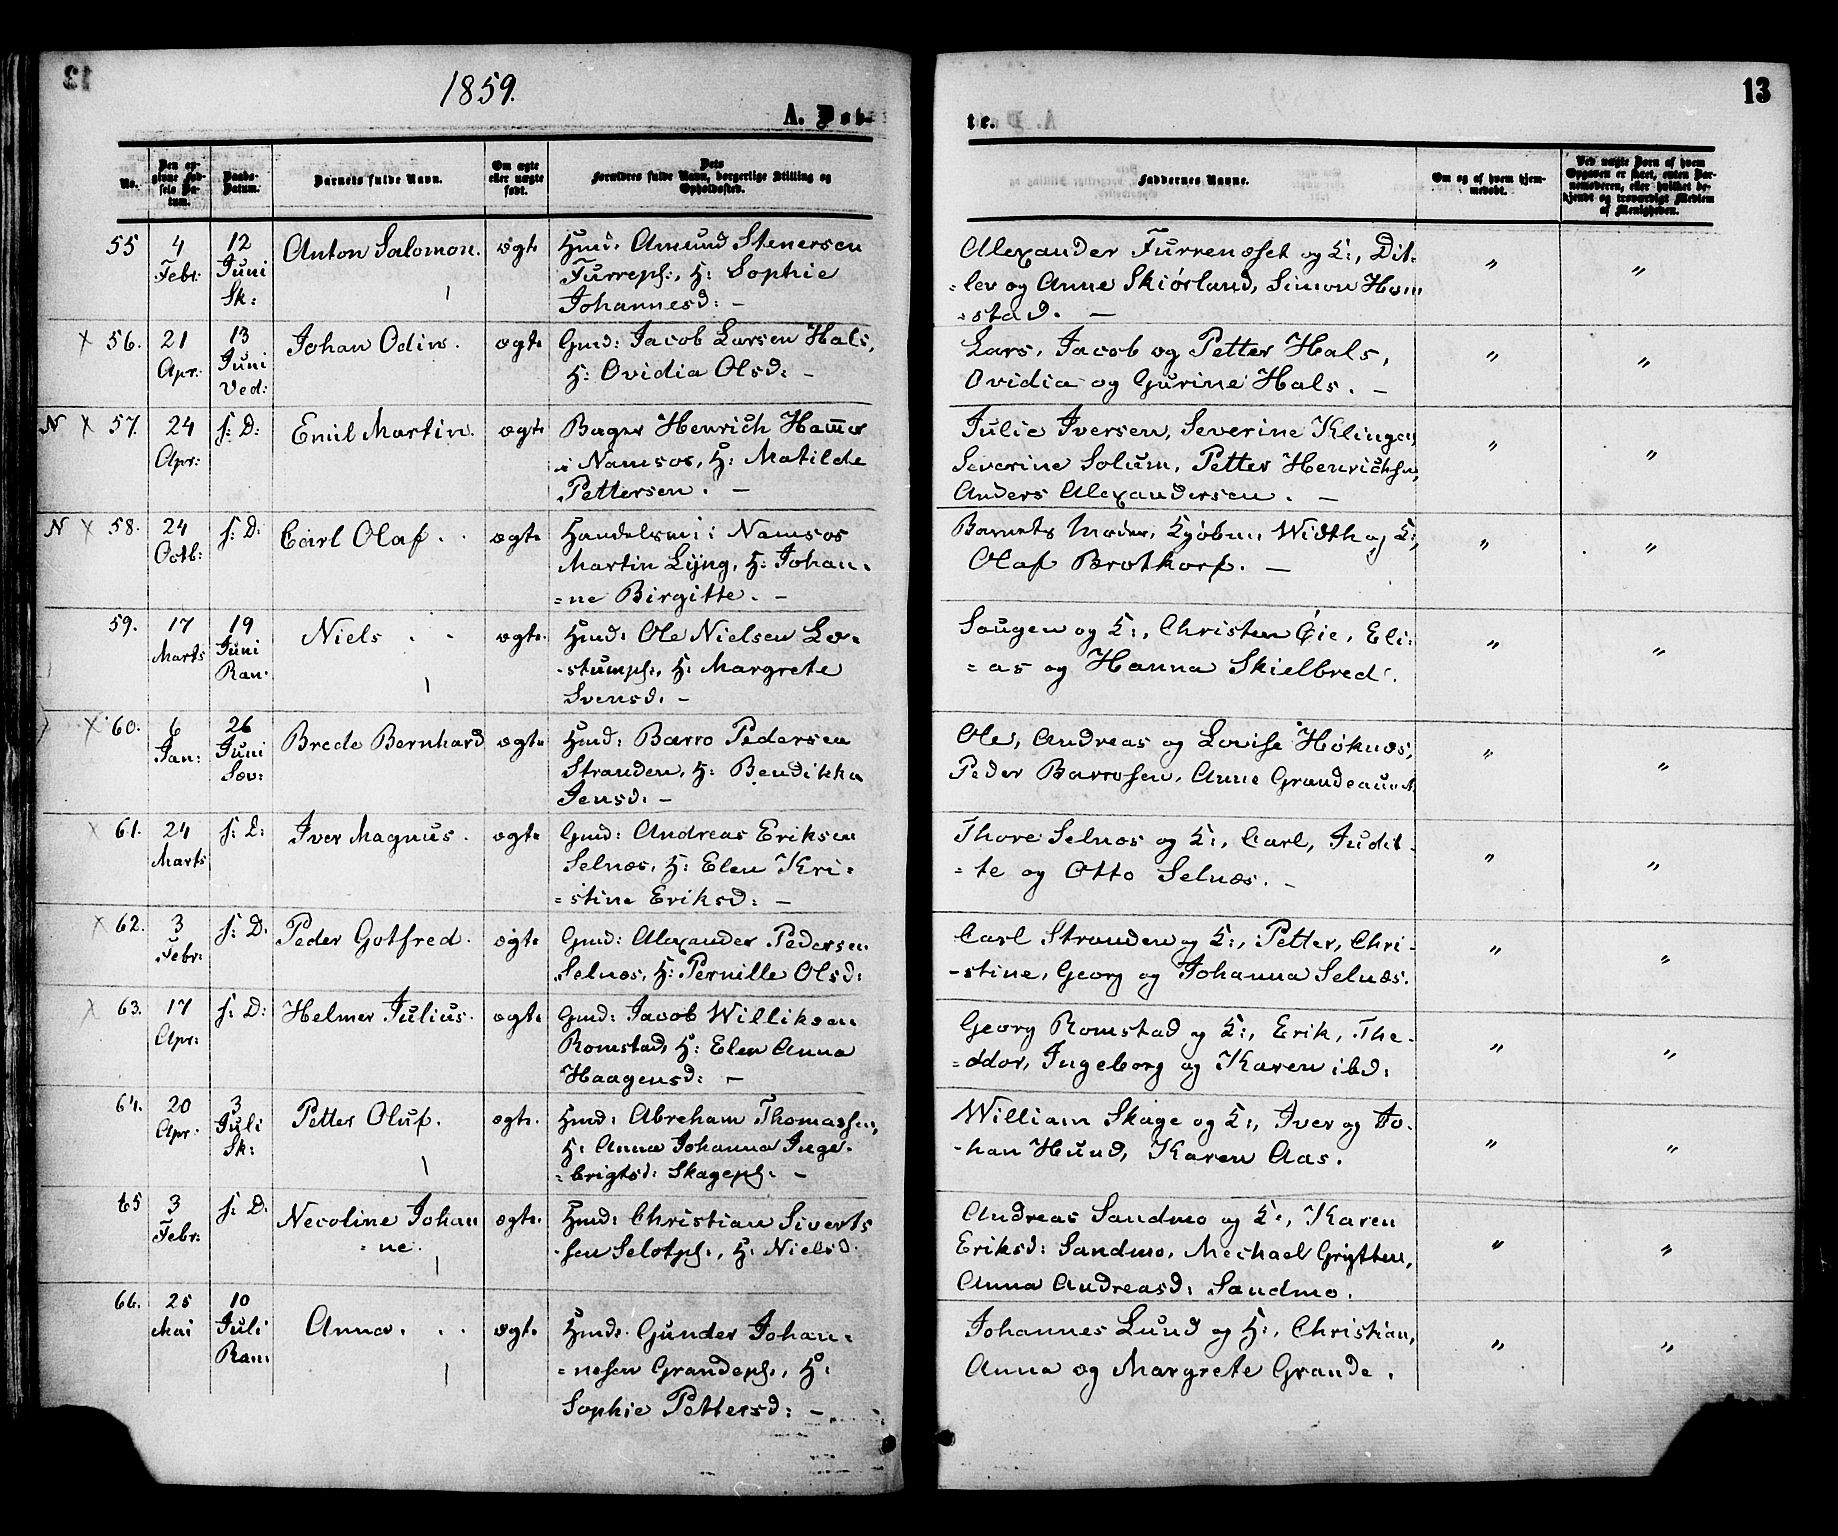 1859.
13
A. Døb-
te.
No.
Den opgivne Fødsels Datum.
Daabs-Datum.
Barnets fulde Navn.
Om ægte eller uægte født.
Forældres fulde Navn, borgerlige Stilling og Opholdssted.
Faddernes Navne.
Om og af hvem hjemmedøbt.
Ved uægte Børn af hvem Opgaven er skeet, enten Barnemoderen, eller hvilket bekjendt og troværdigt Medlem af Menigheden.
55 4 Febr: 12 Juni Sk: Anton Salomon. ægte
Hmd: Amund Stenersen
Furrepl:, H: Sophie
Johannesd: –
Alexander Furrenæset og K:, Dit-
=lev og Anne Skiørland, Simon Hem
=stad. –
" "
X 56. 21 Apr: 13 Juni Ved: Johan Odin. ægte
Gmd: Jacob Larsen Hals,
H: Ovidia Olsd: –
Lars, Jacob og Petter Hals,
Ovidia og Gurine Hals. –
" "
N X 57. 24 Apr: s: D: Emil Martin. ægte
Bager Henrich Hammer
i Namsos, H: Matilde
Pettersen. –
Julie Iversen, Severine Klingen,
Severine Solum, Petter Henrichsen,
Anders Alexandersen. –
" "
N X 58. 24 Octb: s: D: Carl Olaf. ægte
Handelsm: i Namsos
Martin Lÿng, H: Johan-
=ne Birgitte. –
Barnets Moder, Kjøbm: Width og K:,
Olaf Brotkorp. –
" "
59. 17 Marts 19 Juni Ran: Niels ægte.
Hmd: Ole Nielsen Lo-
=stumpl:, H: Margrete
Svensd. –
Saugen og K:, Christen Øie, Eli-
=as og Hanna Skielbred.
" "
X 60. 6 Jan: 26 Juni Sæv: Brede Bernhard ægte
Hmd: Barro Pedersen
Stranden, H: Bendikka
Jensd: –
Ole, Andreas og Lovise Høknæs,
Peder Barrosen, Anne Grandeaunet
" "
X 61. 24 Marts s: D: Iver Magnus. ægte
Gmd: Andreas Eriksen
Selnæs, H: Elen Kri-
=stine Eriksd: –
Thore Selnæs og K:, Carl, Judit-
=te og Otto Selnæs. –
" "
X 62. 3 Febr: s: D: Peder Gotfred. ægte
Gmd: Alexander Pedersen
Selnæs, H: Pernille Olsd:
Carl Stranden og K:, Petter, Chri-
-stine, Georg og Johanna Selnæs.
" "
X 63. 17 Apr: s: D: Helmer Julius. ægte
Gmd: Jacob Williksen
Romstad, H: Elen Anna
Haagensd: –
Georg Romstad og K:, Erik, The-
=odor, Ingeborg og Karen ibd:
" "
64. 20 Apr: 3 Juli Sk: Petter Oluf. ægte.
Hmd: Abreham Thomassen,
H: Anna Johanna Inge-
=brigtsd: Skagepl: –
William Skage og K:, Iver og Jo-
-han Hund, Karen Aas.
" "
65 3 Febr: s: D: Necoline Johan
=ne. ægte.
Hmd: Christian Siverts
=sen Selotpl:, H: Nielsd.
Andreas Sandmo og K:, Karen
Eriksd: Sandmo, Mechael Grÿtten,
Anna Andreasd: Sandmo.
" "
66. 25 Mai 10 Juli Ran: Anna. ægte.
Hmd: Gunder Johan-
=nesen Grandepl:, H:
Sophie Pettersd: –
Johannes Lund og H:, Christian,
Anna og Margrete Grande.
" "